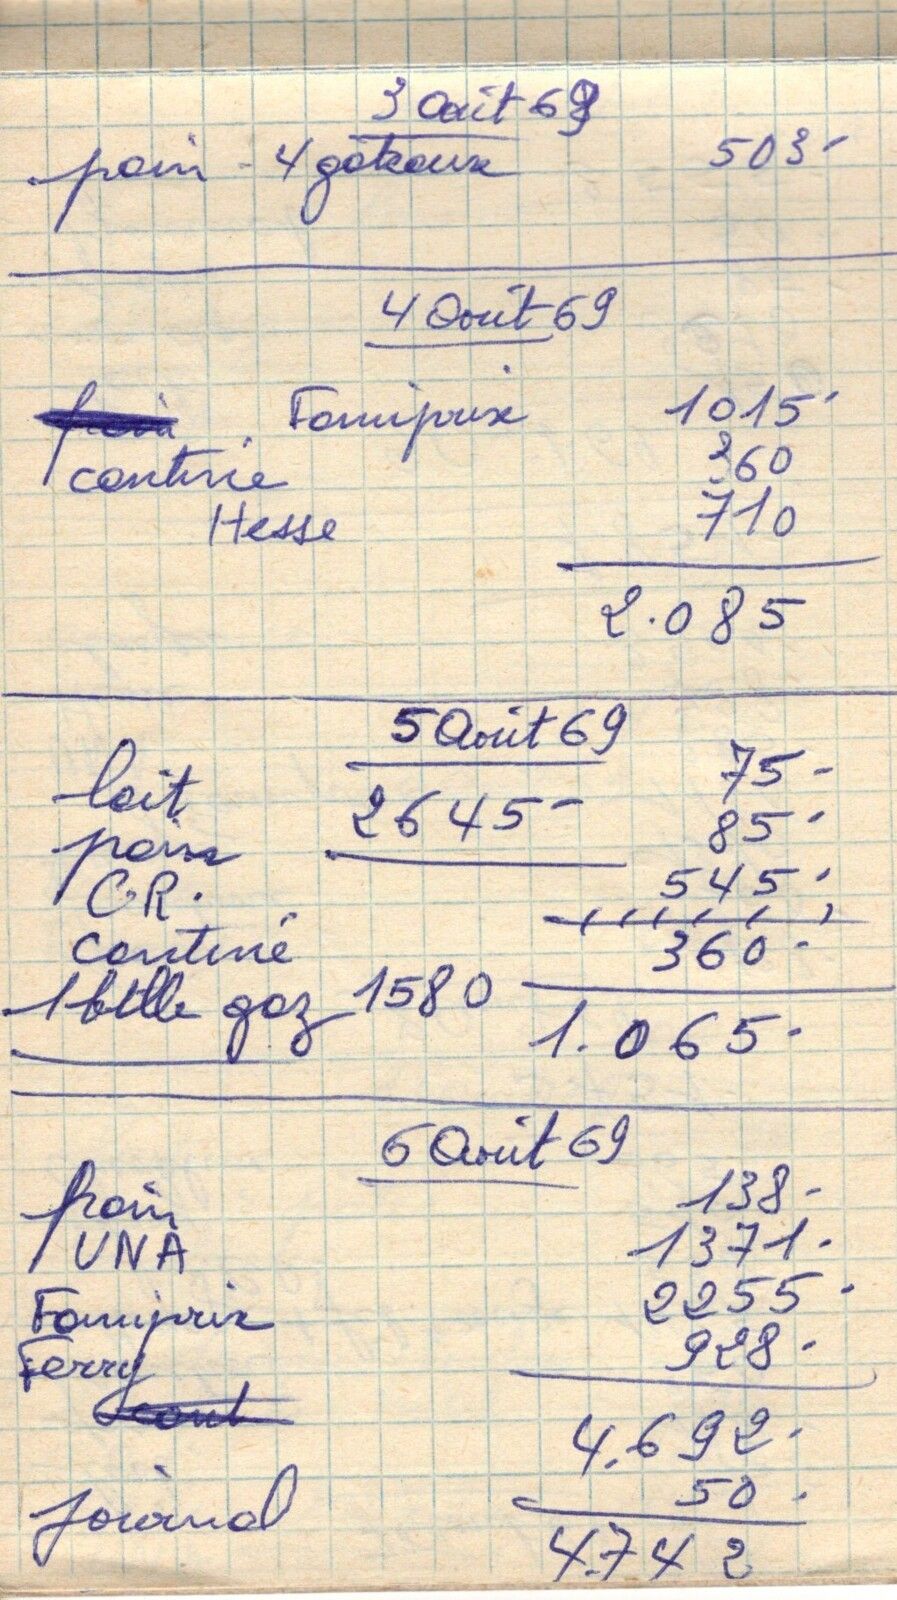 3 Août 69
pain - 4 gâteaux 503-
4 Août 69
Famiprix 1015-
cantine 360
Hesse 710
2.085
5 Août 69
lait 75-
2645-
pain 85-
C.R. 545-
cantine 360-
1 btlle gaz 1580
1.065-
6 Août 69
pain 138-
UNA 1371-
Famiprix 2255-
Ferry 928-
4.692-
journal 50-
4.742